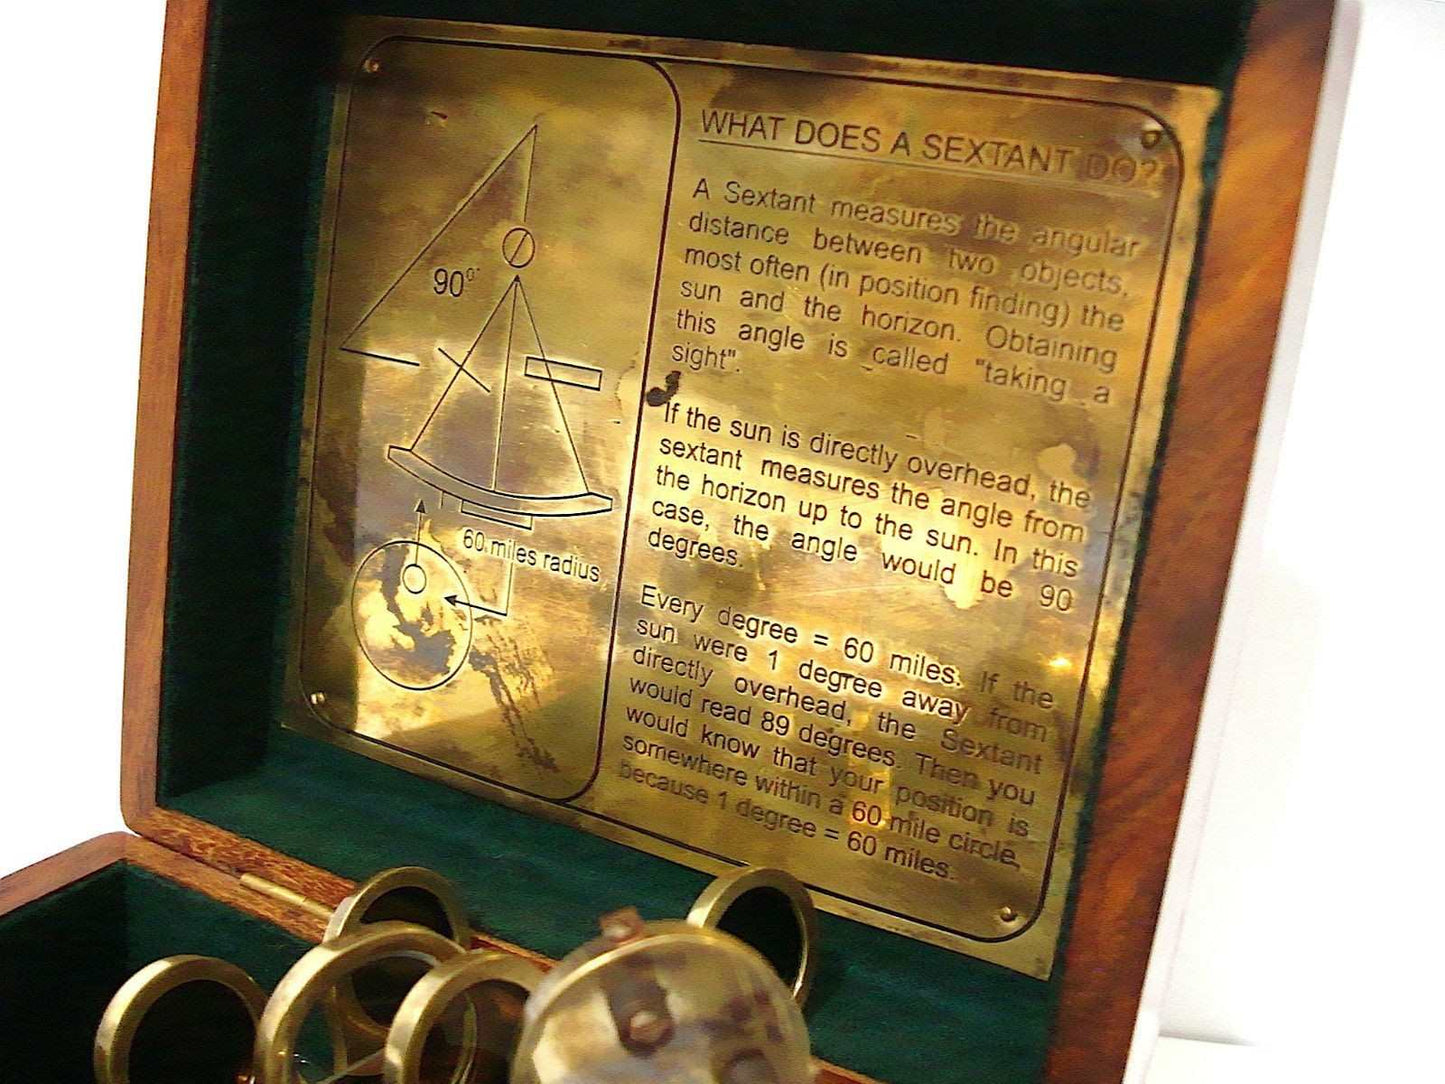 90°
60 miles radius
WHAT DOES A SEXTANT DO?
A Sextant measures the angular
distance between two objects,
most often (in position finding) the
sun and the horizon. Obtaining
this angle is called "taking a
sight".
If the sun is directly overhead, the
sextant measures the angle from
the horizon up to the sun. In this
case, the angle would be 90
degrees.
Every degree = 60 miles. If the
sun were 1 degree away from
directly overhead, the Sextant
would read 89 degrees. Then you
would know that your position is
somewhere within a 60 mile circle,
because 1 degree = 60 miles.